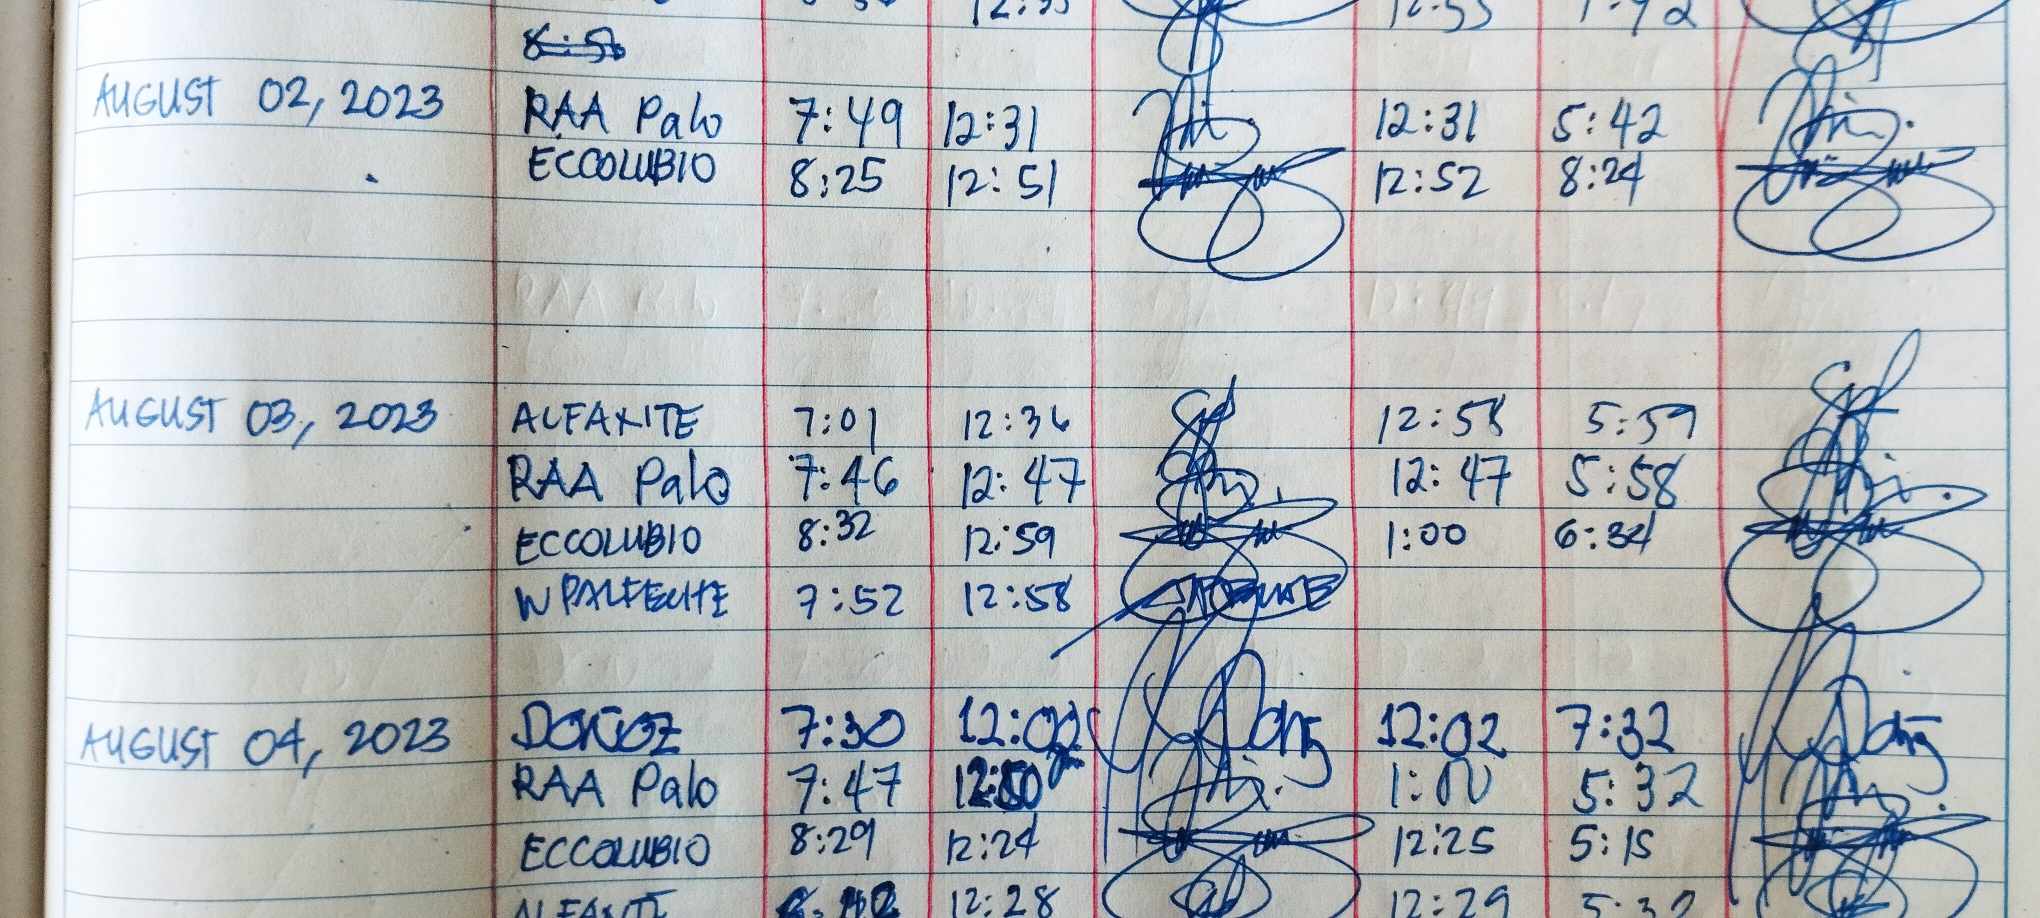 12:55 12:55 1:42
AUGUST 02, 2023 RAA Palo 7:49 12:31 12:31 5:42
ECCOLUBIO 8:25 12:51 12:52 8:24
AUGUST 03, 2023 ALFANTE 7:01 12:36 12:58 5:59
RAA Palo 7:46 12:47 12:47 5:58
ECCOLUBIO 8:32 12:59 1:00 6:34
7:52 12:58
AUGUST 04, 2023 7:30 12:02 7:32
RAA Palo 7:47 12:50 1:00 5:32
ECCOLUBIO 8:29 12:24 12:25 5:15
ALFANTE 12:28 12:29